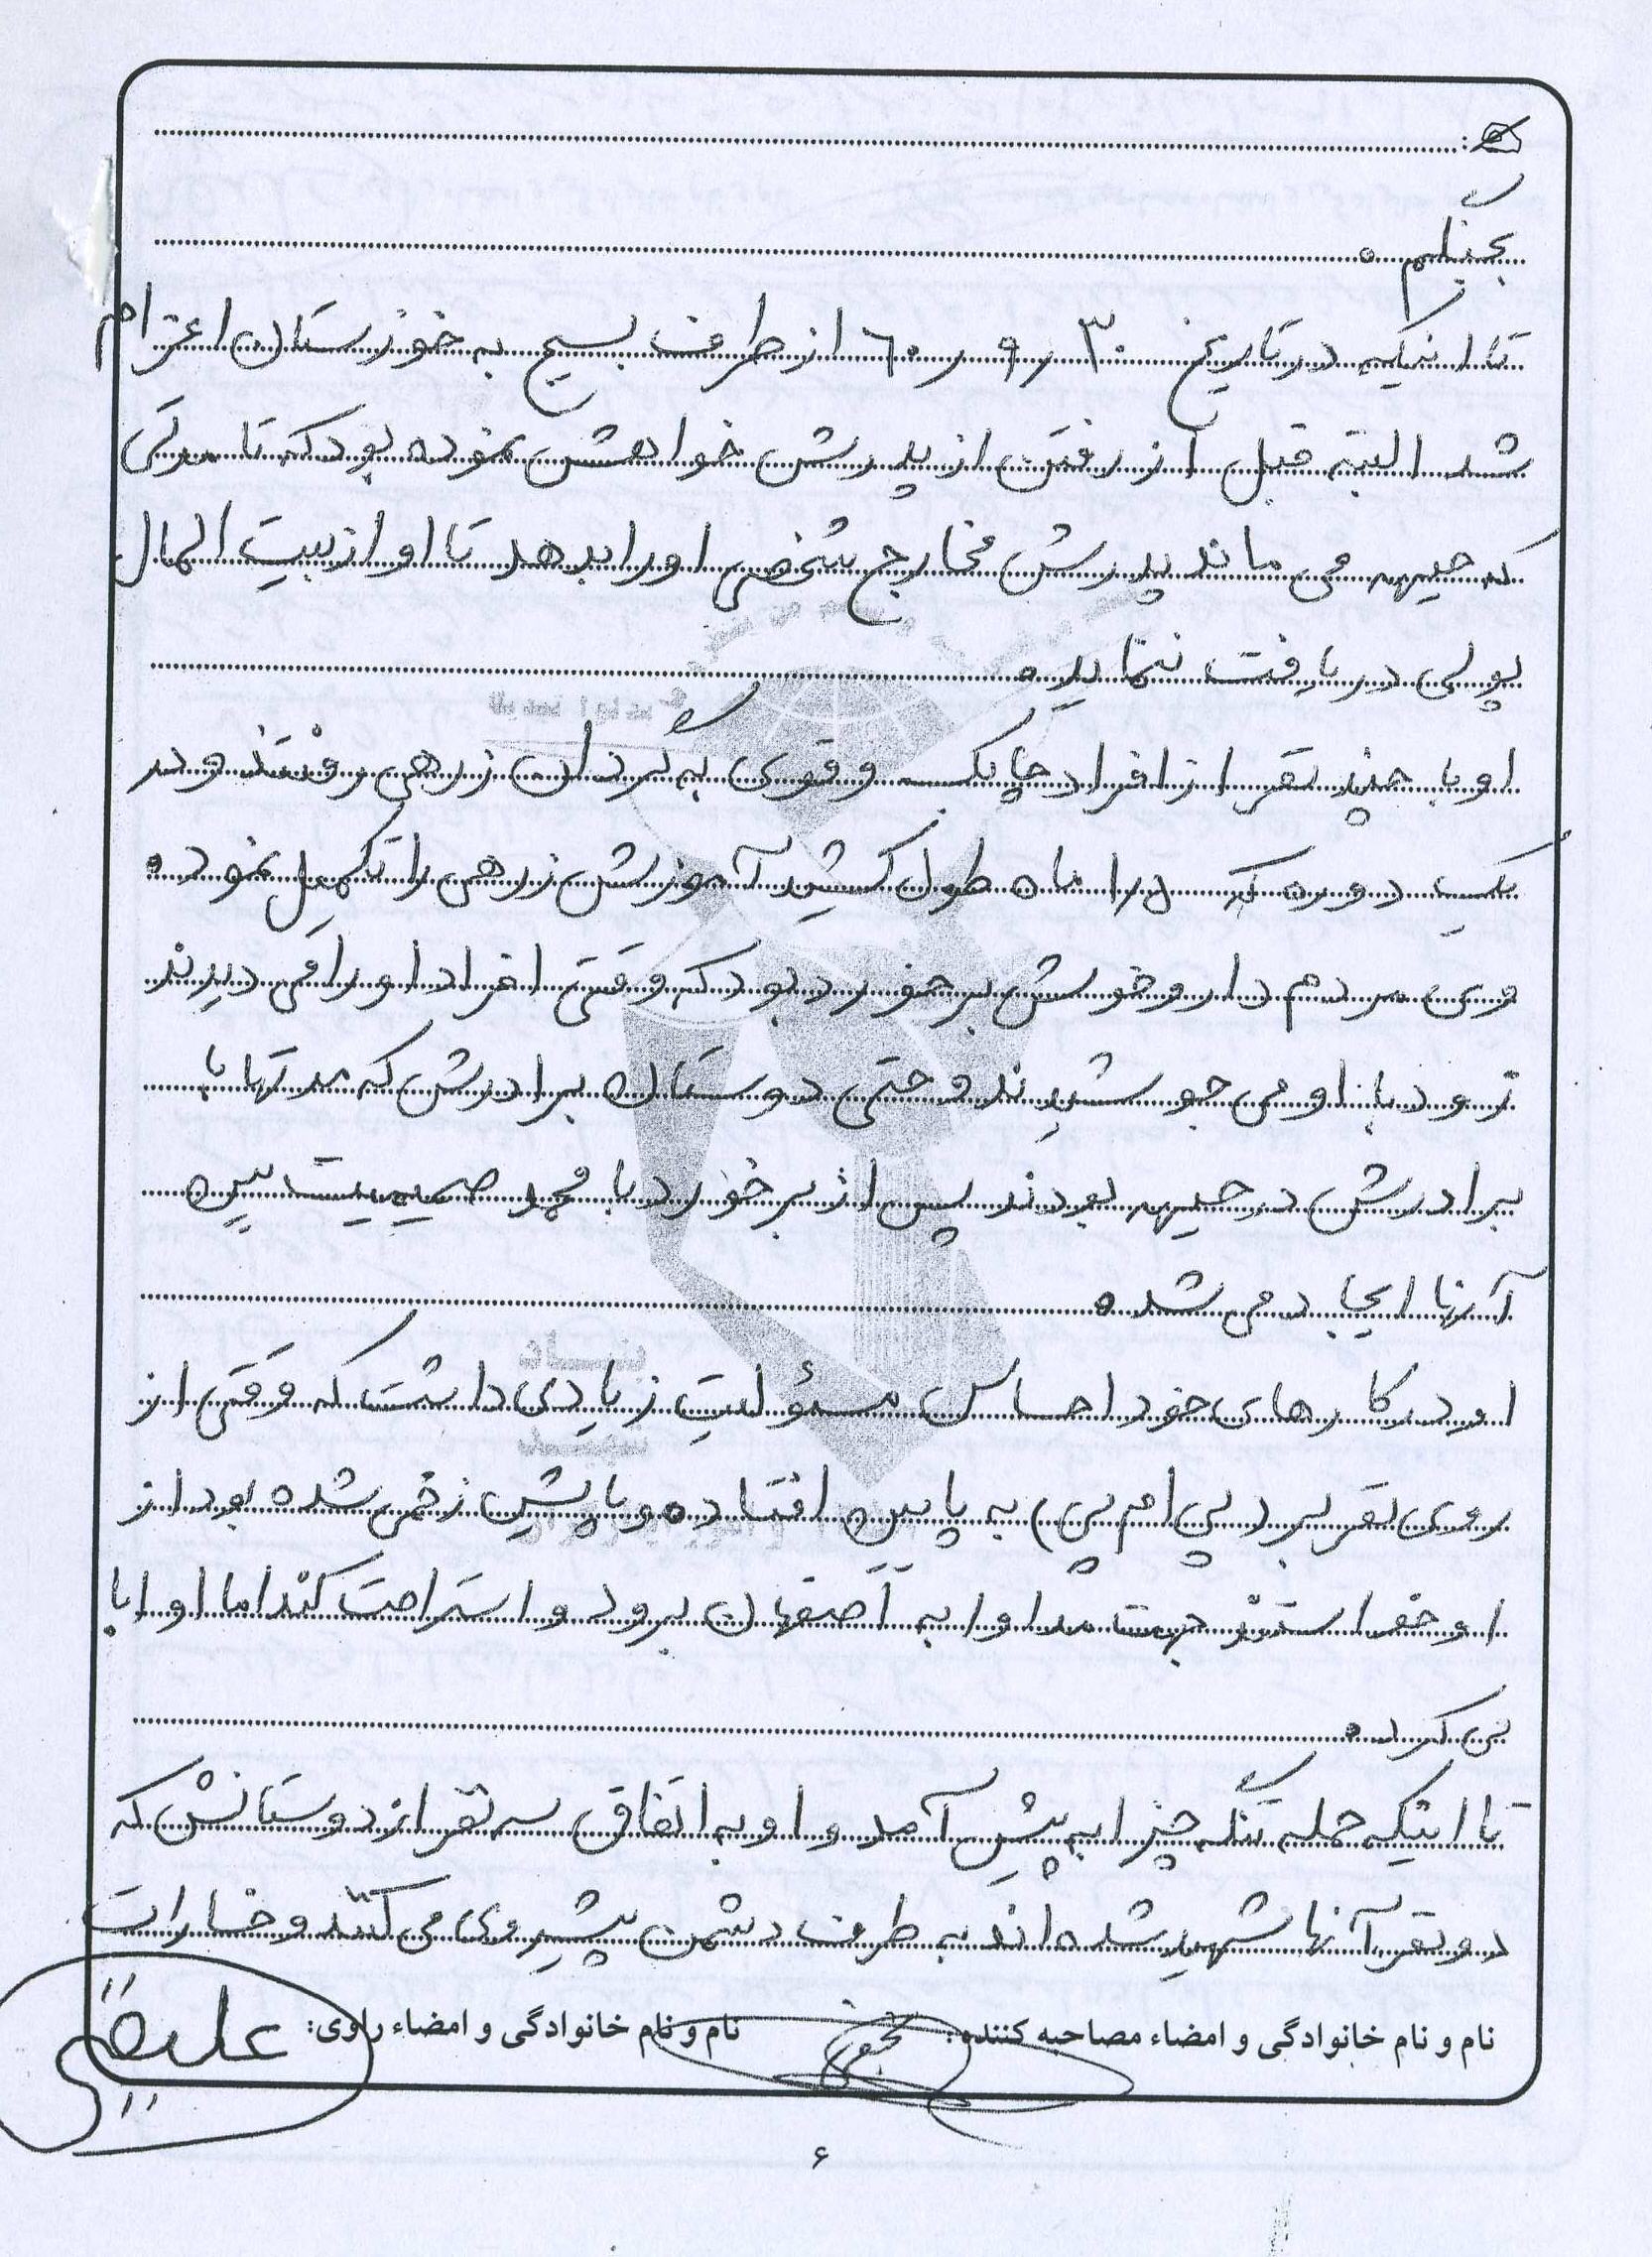 بجنگیم.
تا اینکه در تاریخ ۳۰ ر ۹ ر ۶۰ از طرف بسیج به خوزستان اعزام
شد البته قبل از رفتن از پدرش خواهش نموده بود که تا مدتی
که جبهه می ماند پدرش مخارج شخصی او را بدهد تا او از بیت المال
پولی دریافت ننماید.
او با چند نفر از افراد چابک و قوی به گردان زرهی رفتند و در
یک دوره که ۱٫۵ ماه طول کشید آموزش زرهی را تکمیل نمود.
وی مردم دار و خوش برخورد بود که وقتی افراد او را می دیدند
زود با او می جوشیدند و حتی دوستان برادرش که مدتها با
برادرش در جبهه بودند پس از برخورد با محمد صمیمیت بین
آنها ایجاد می شد.
او در کارهای خود احساس مسئولیت زیادی داشت که وقتی از
روی نفربر (پی ام پی) به پایین افتاده و پایش زخمی شده بود از
او خواستند جهت مداوا به اصفهان برود و استراحت کند اما او ابا
می کرد.
تا اینکه حمله تنگه چزابه پیش آمد و او به اتفاق سه نفر از دوستانش که
دو نفر آنها شهید شده اند به طرف دشمن پیشروی می کنند و خسارات
نام و نام خانوادگی و امضاء مصاحبه کننده: نام و نام خانوادگی و امضاء راوی:
۶